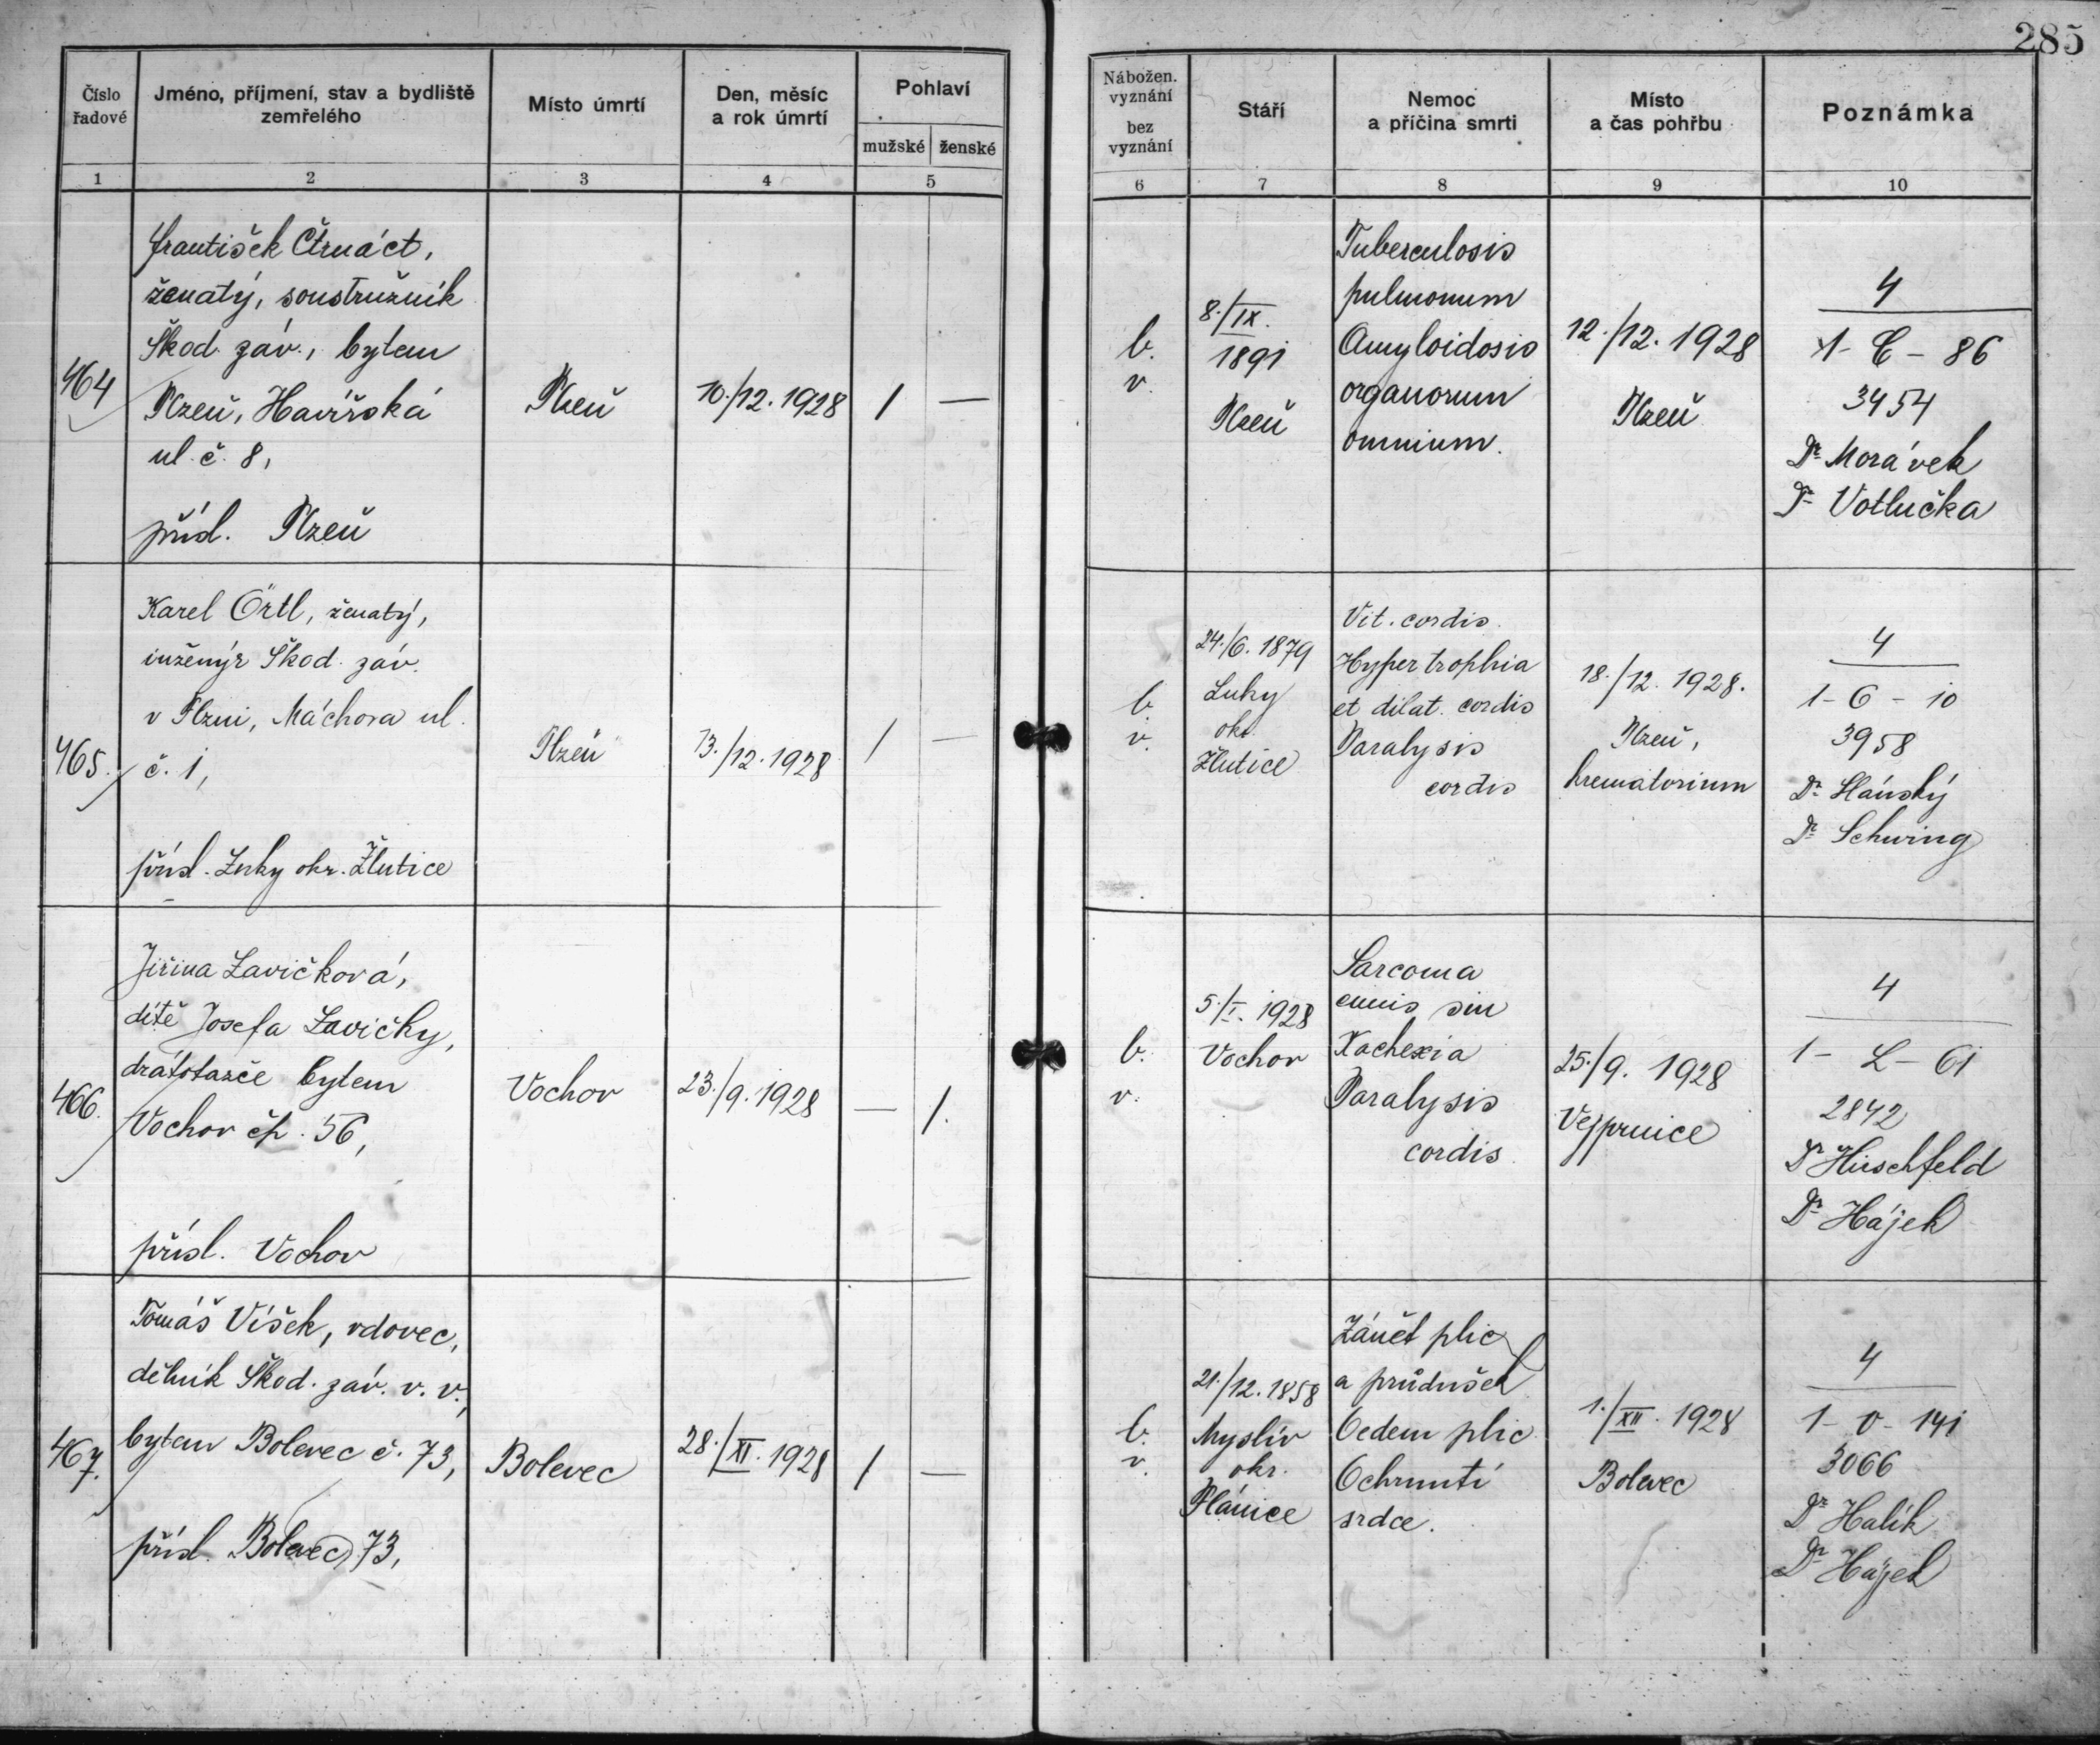 285
Číslo řadové
Jméno, příjmení, stav a bydliště zemřelého
Místo úmrtí
Den, měsíc a rok úmrtí
Pohlaví
mužské
ženské
Nábožen. vyznání
bez vyznání
Stáří
Nemoc a příčina smrti
Místo a čas pohřbu
Poznámka
1
2
3
4
5
6
7
8
9
10
464
František Čtrnáct,
ženatý, soustružník
Škod. záv., bytem
Plzeň, Havířská
ul. č. 8,
přísl. Plzeň
Plzeň
10./12. 1928
/
—
b.
v.
8./IX.
1891
Plzeň
Tuberculosis
pulmonum
Amyloidosis
organorum
omnium.
12./12. 1928
Plzeň
4
1 - C - 86
3454
Dr Morávek
Dr Votlučka
465.
Karel Örtl, ženatý,
inženýr Škod. záv.
v Plzni, Máchova ul.
č. 1,
přísl. Luky okr. Žlutice
Plzeň
13./12. 1928
/
—
b.
v.
24./6. 1879
Luky
okr.
Žlutice
Vit. cordis.
Hypertrophia
et dilat. cordis
Paralysis
cordis
18./12. 1928.
Plzeň,
krematorium
4
1 - 6 - 10
3958
Dr Slánský
Dr Schwing
466.
Jiřina Lavičková,
dítě Josefa Lavičky,
drátotažče bytem
Vochov čp. 56,
přísl. Vochov
Vochov
23./9. 1928
—
/.
b.
v.
5./I. 1928
Vochov
Sarcoma
sin
Kachexia
Paralysis
cordis
25./9. 1928
Vejprnice
4
1 - L - 61
2842
Dr Hirschfeld
Dr Hájek
467.
Tomáš Víšek, vdovec,
dělník Škod. záv. v. v.,
bytem Bolevec č. 73,
přísl. Bolevec 73,
Bolevec
28./XI. 1928
/
—
b.
v.
21./12. 1858
Myslív
okr.
Plánice
Zánět plic
a průdušek
Oedem plic
Ochrnutí
srdce.
1./XII. 1928
Bolevec
4
1 - O - 141
3066
Dr Halík
Dr Hájek